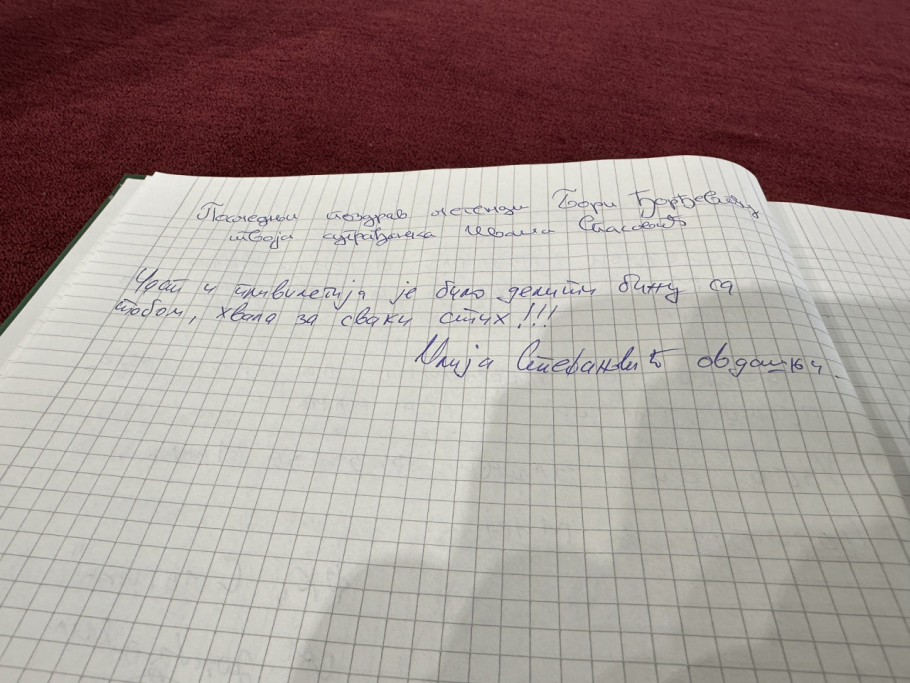 Последњи поздрав легенди Бори Ђорђевићу
твоја суграђанка Ивана Спасовић
Част и привилегија је било делити бину са
тобом, хвала за сваки стих!!!
Илија Стефановић